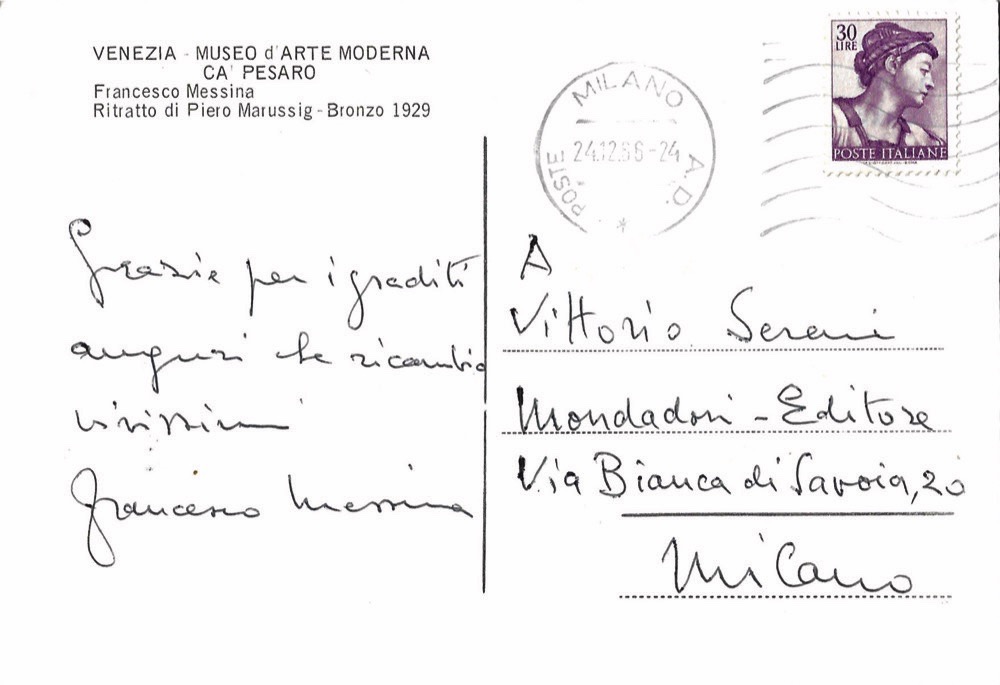 VENEZIA - MUSEO d'ARTE MODERNA
CA' PESARO
Francesco Messina
Ritratto di Piero Marussig - Bronzo 1929
30
LIRE
POSTE ITALIANE
MILANO A.D.
24.12.66-24
POSTE
*
Grazie per i graditi
auguri che ricambio
vivissimi
Francesco Messina
A
Vittorio Sereni
Mondadori - Editore
Via Bianca di Savoia, 20
Milano